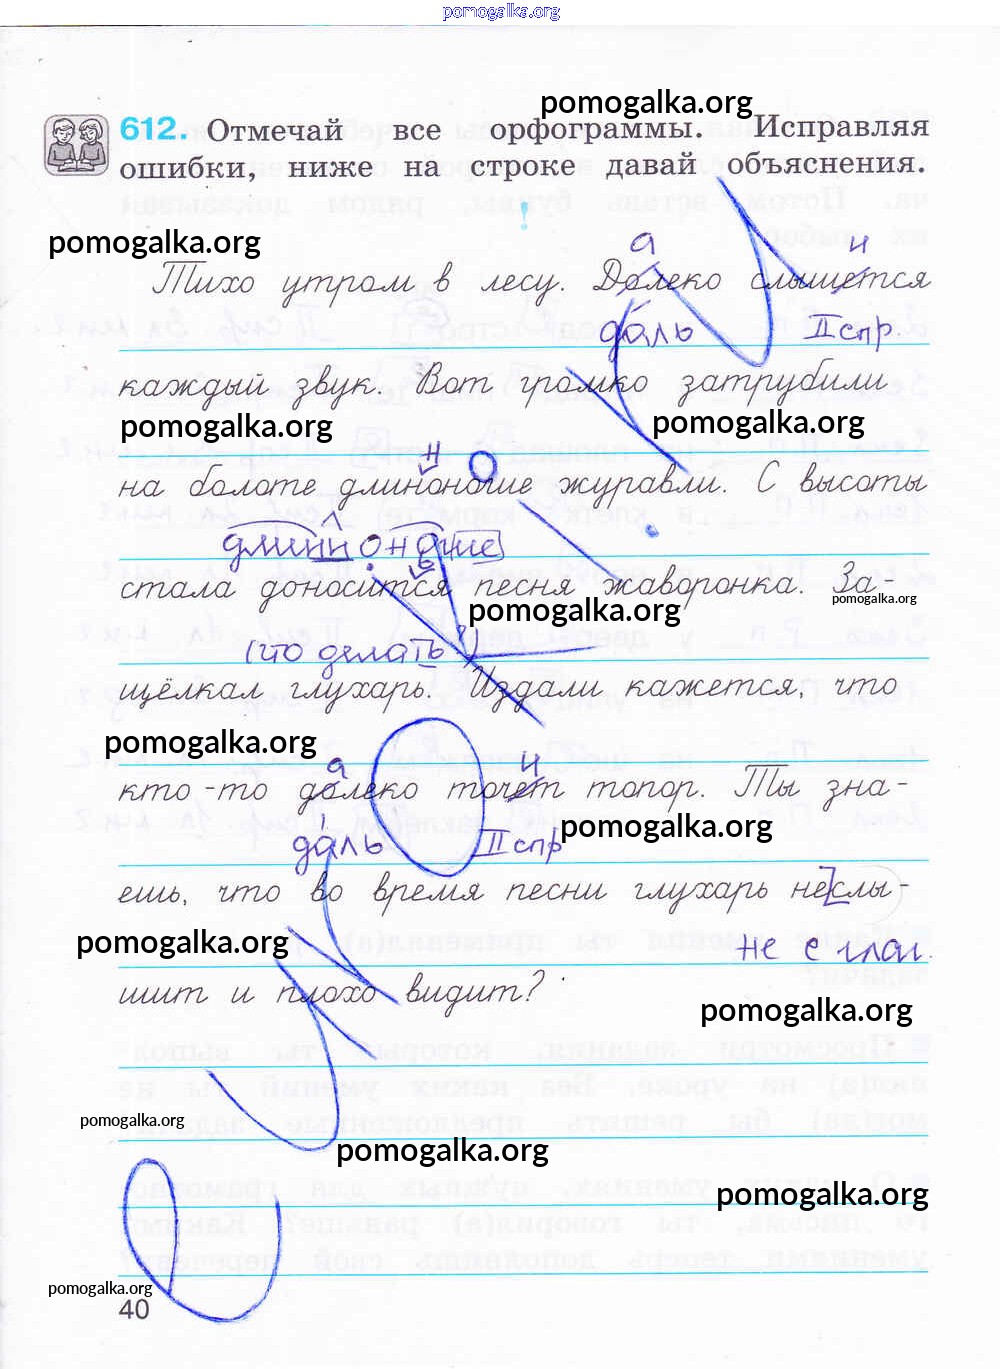 pomogalka.org
pomogalka.org
612. Отмечай все орфограммы. Исправляя
ошибки, ниже на строке давай объяснения.
!
pomogalka.org
а и
Тихо утром в лесу. Долеко слыщется
даль II спр.
каждый звук. Вот громко затрубили
pomogalka.org pomogalka.org
н
на болоте длиноногие журавли. С высоты
длинноногие
ь
стала доносится песня жаворонка. За-
pomogalka.org pomogalka.org
(что делать?)
щёлкал глухарь. Издали кажется, что
pomogalka.org
а и
кто-то долеко точет топор. Ты зна-
pomogalka.org
даль II спр
ешь, что во время песни глухарь неслы-
pomogalka.org не с глаг.
шит и плохо видит?
pomogalka.org
pomogalka.org
pomogalka.org
pomogalka.org
pomogalka.org
40